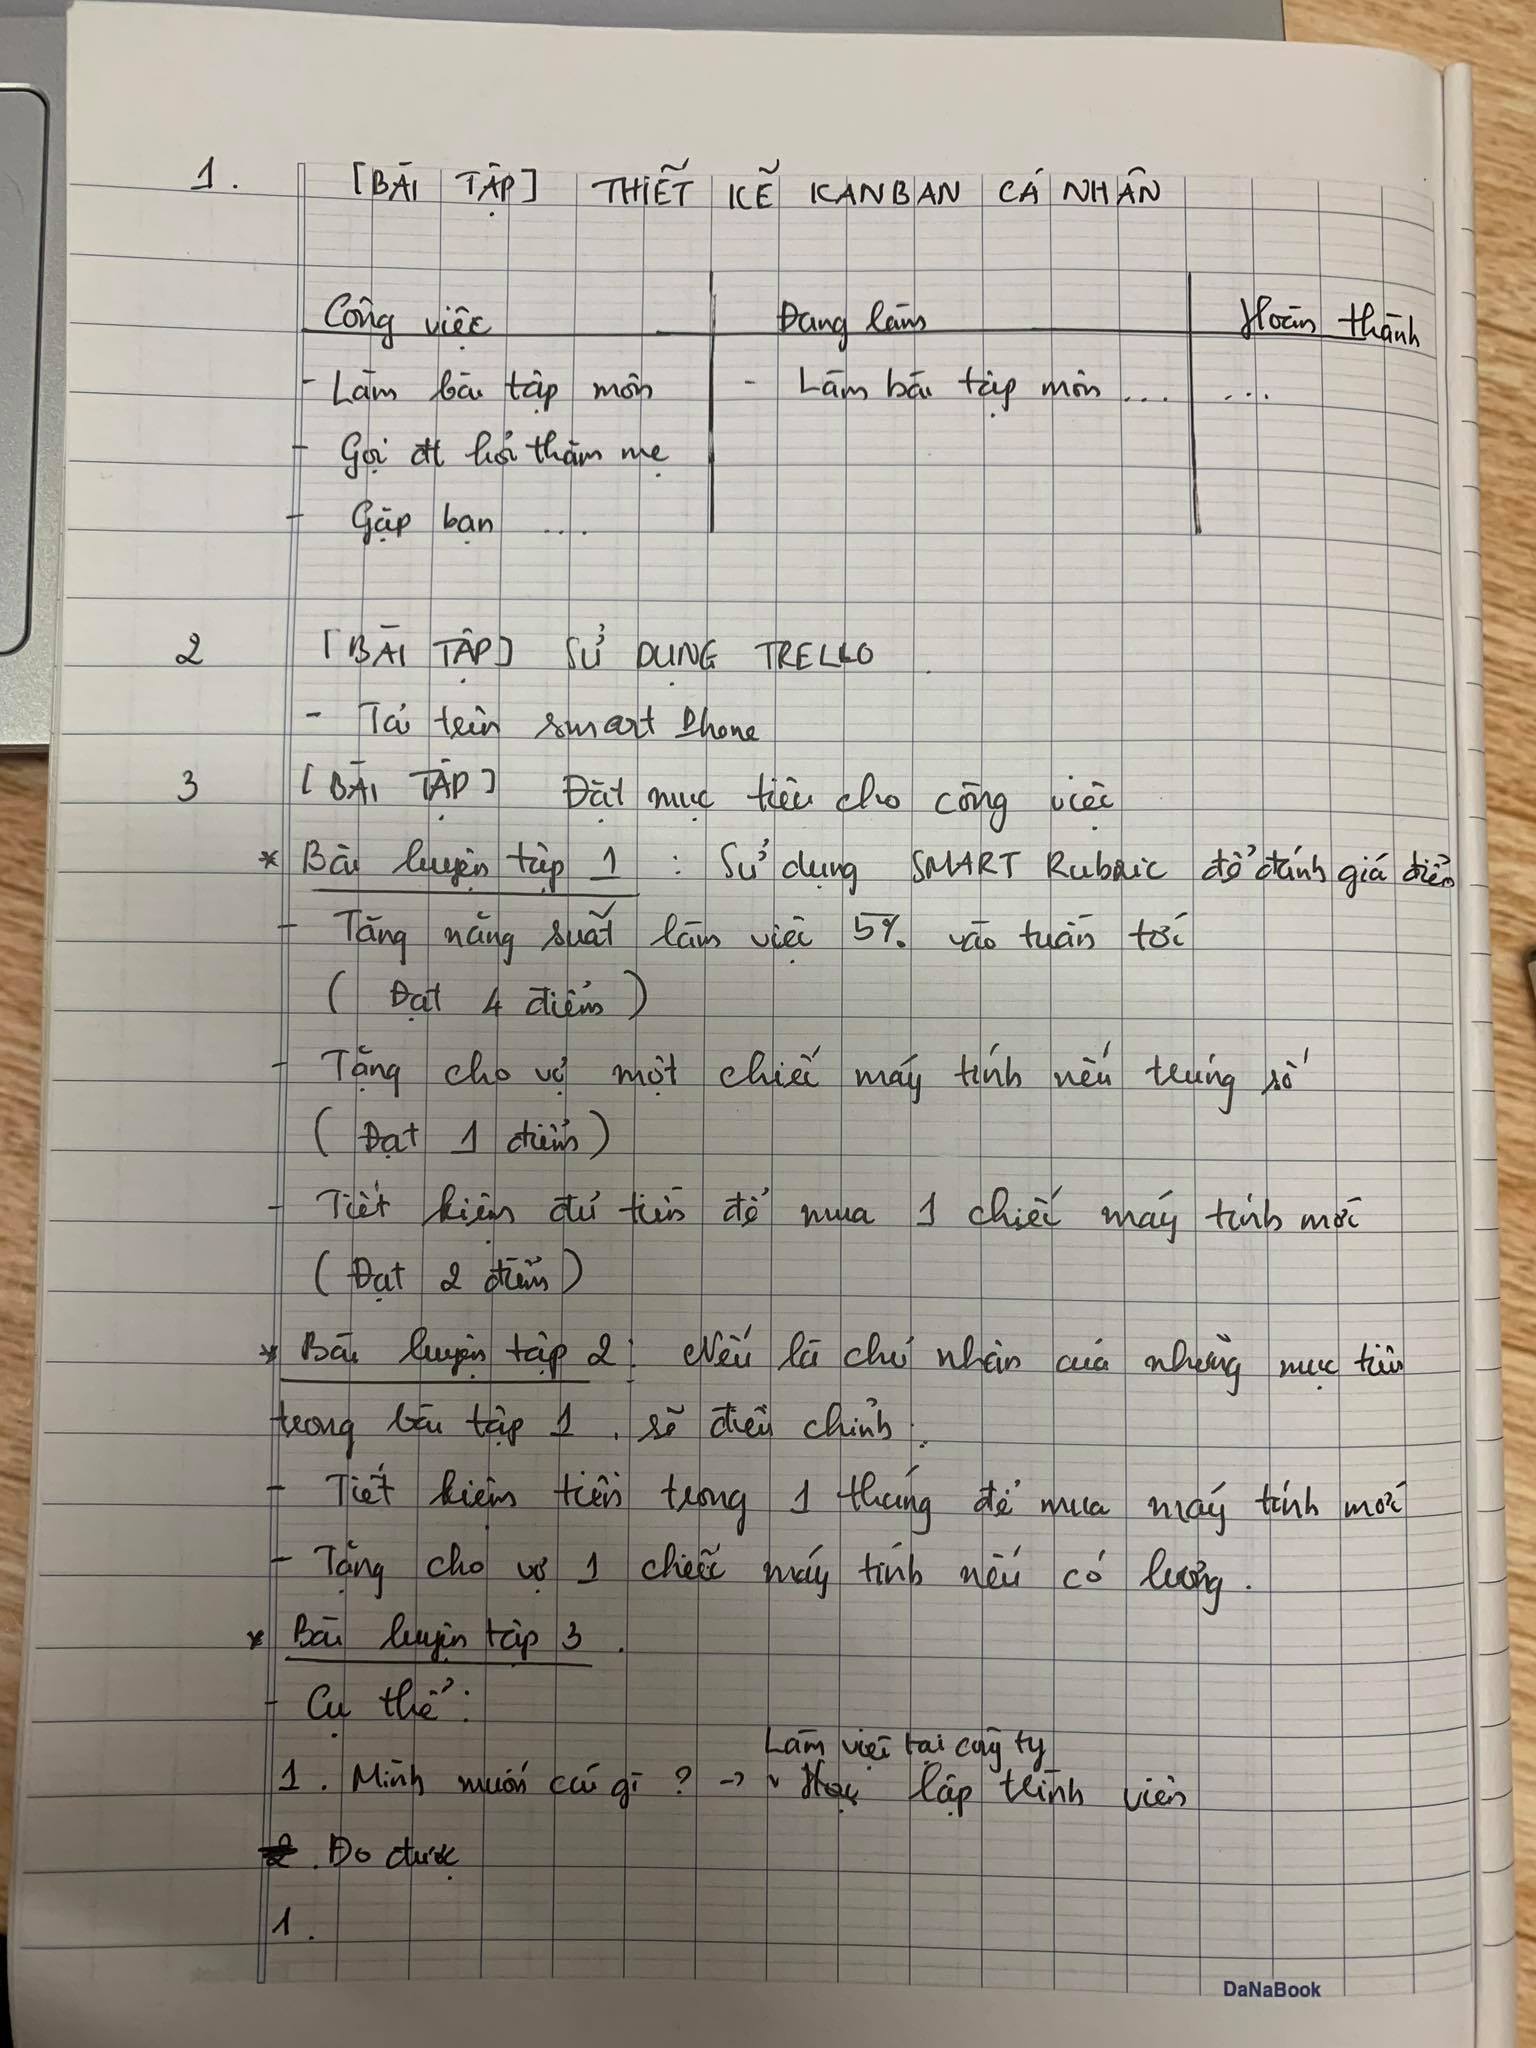 1. [BÀI TẬP] THIẾT KẾ KANBAN CÁ NHÂN
Công việc Đang làm Hoàn thành
- Làm bài tập môn - Làm bài tập môn ... ...
- Gọi đt hỏi thăm mẹ
- Gặp bạn ....
2 [BÀI TẬP] SỬ DỤNG TRELLO
- Tải trên smart Phone
3 [BÀI TẬP] Đặt mục tiêu cho công việc
* Bài luyện tập 1 : Sử dụng SMART Rubric để đánh giá điểm
- Tăng năng suất làm việc 5% vào tuần tới
( Đạt 4 điểm )
- Tặng cho vợ một chiếc máy tính nếu trúng số
( Đạt 1 điểm )
- Tiết kiệm đủ tiền để mua 1 chiếc máy tính mới
( Đạt 2 điểm )
* Bài luyện tập 2 : Nếu là chủ nhân của những mục tiêu
trong bài tập 1 . sẽ điều chỉnh :
- Tiết kiệm tiền trong 1 tháng để mua máy tính mới
- Tặng cho vợ 1 chiếc máy tính nếu có lương .
* Bài luyện tập 3 .
- Cụ thể :
Làm việc tại công ty
1 . Mình muốn cái gì ? → v Học lập trình viên
2 . Đo được
1 .
DaNaBook